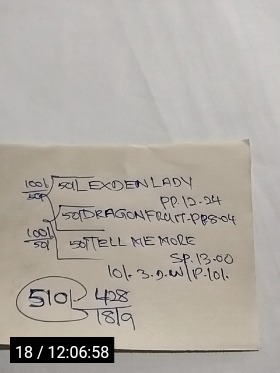 100/ 50/ LEXDEN LADY
50P PP.12.24
50/ DRAGONFRUIT-PBS.04
100/ 50/ TELL ME MORE
50/ SP.13.00
10/. 3.2.W/P.10/.
510/- 428
1819
18 / 12:06:58